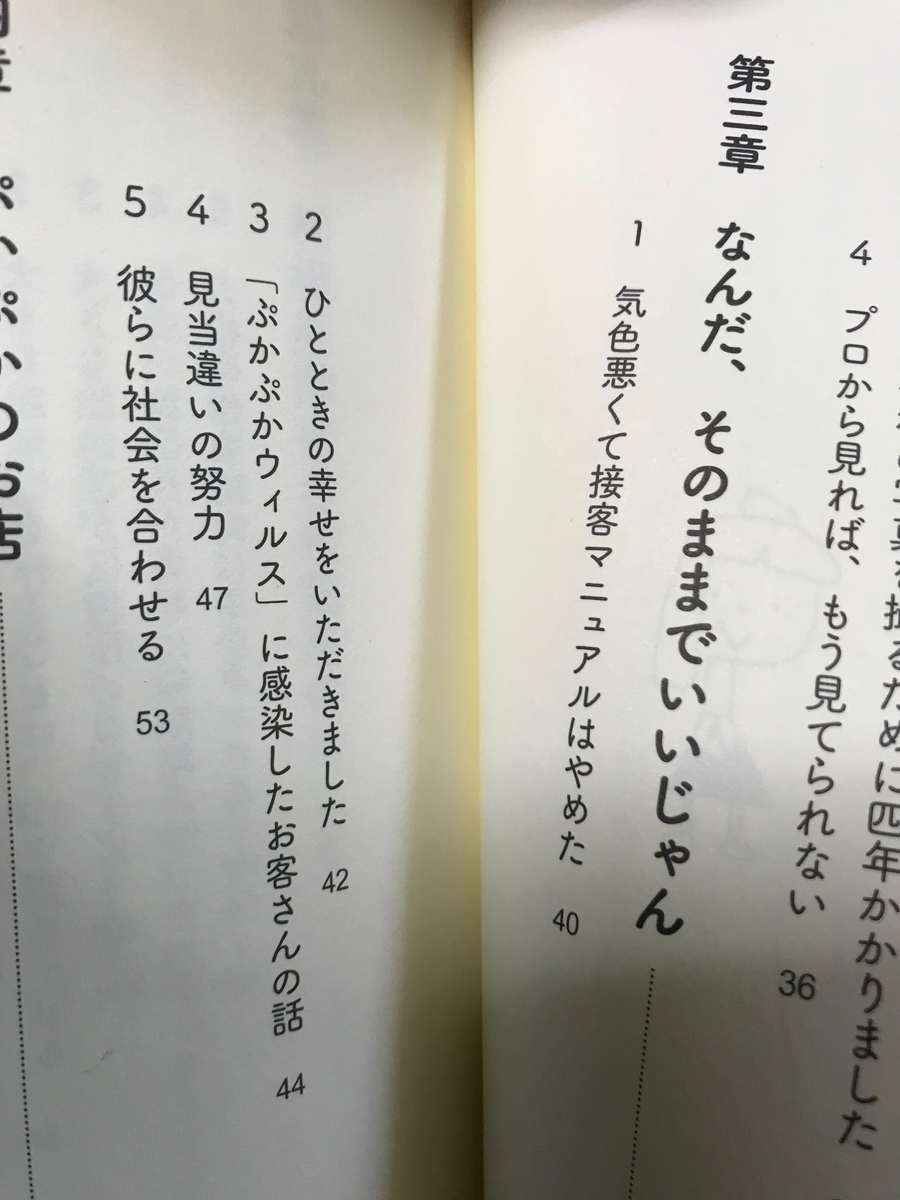 真を撮るために四年かかりました
4 プロから見れば、もう見てられない 36
第三章 なんだ、そのままでいいじゃん
1 気色悪くて接客マニュアルはやめた 40
2 ひとときの幸せをいただきました 42
3 「ぷかぷかウィルス」に感染したお客さんの話 44
4 見当違いの努力 47
5 彼らに社会を合わせる 53
お店